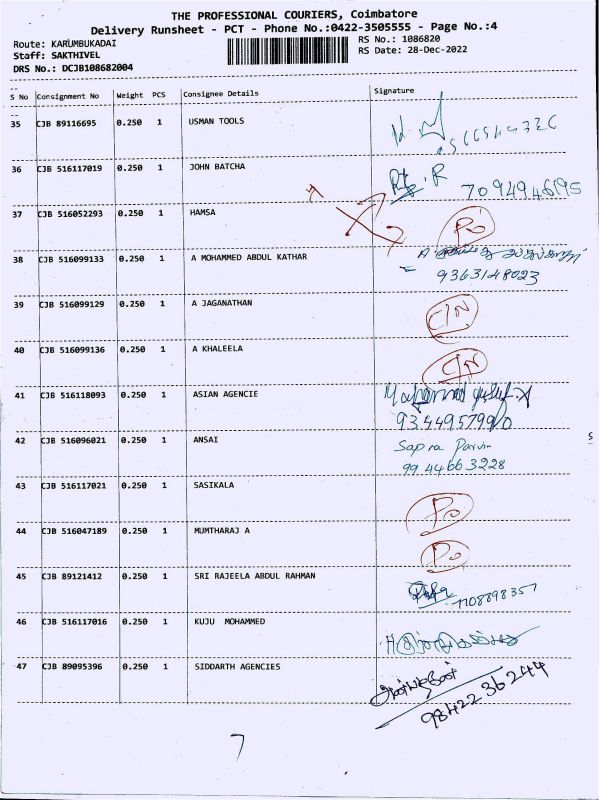 THE PROFESSIONAL COURIERS, Coimbatore
Delivery Runsheet - PCT - Phone No.:0422-3505555 - Page No.:4
Route: KARUMBUKADAI RS No.: 1086820
Staff: SAKTHIVEL RS Date: 28-Dec-2022
DRS No.: DCJB108682004
S No Consignment No Weight PCS Consignee Details Signature
35 CJB 89116695 0.250 1 USMAN TOOLS
36 CJB 516117019 0.250 1 JOHN BATCHA
7094946195
37 CJB 516052293 0.250 1 HAMSA
38 CJB 516099133 0.250 1 A MOHAMMED ABDUL KATHAR
9363148023
39 CJB 516099129 0.250 1 A JAGANATHAN C/N
40 CJB 516099136 0.250 1 A KHALEELA C/N
41 CJB 516118093 0.250 1 ASIAN AGENCIE
42 CJB 516096021 0.250 1 ANSAI Sapra Parvin
9944663228
43 CJB 516117021 0.250 1 SASIKALA
44 CJB 516047189 0.250 1 MUMTHARAJ A
45 CJB 89121412 0.250 1 SRI RAJEELA ABDUL RAHMAN
46 CJB 516117016 0.250 1 KUJU MOHAMMED
47 CJB 89095396 0.250 1 SIDDARTH AGENCIES
9842236244
7